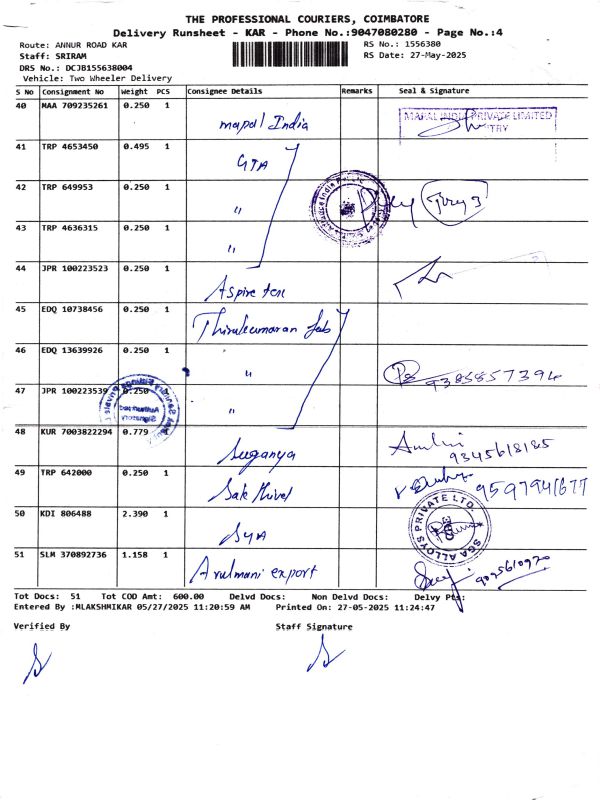 THE PROFESSIONAL COURIERS, COIMBATORE
Delivery Runsheet - KAR - Phone No.:9047080280 - Page No.:4
Route: ANNUR ROAD KAR
RS No.: 1556380
Staff: SRIRAM
RS Date: 27-May-2025
DRS No.: DCJB155638004
Vehicle: Two Wheeler Delivery
S No Consignment No Weight PCS Consignee Details Remarks Seal & Signature
40 MAA 709235261 0.250 1 mapal India
MAPAL INDIA PRIVATE LIMITED
41 TRP 4653450 0.495 1 GTA
42 TRP 649953 0.250 1 "
43 TRP 4636315 0.250 1 "
44 JPR 100223523 0.250 1 Aspire
45 EDQ 10738456 0.250 1 Thirukumaran fab
46 EDQ 13639926 0.250 1 " 9385857394
47 JPR 100223539 0.250 1 "
48 KUR 7003822294 0.779 1 Suganya 9345618185
49 TRP 642000 0.250 1 Sakthivel 9597941677
50 KDI 806488 2.390 1
SGA ALLOYS PRIVATE LTD.
51 SLM 370892736 1.158 1 Arulmani export
Tot Docs: 51 Tot COD Amt: 600.00 Delvd Docs: Non Delvd Docs: Delvy Pts:
Entered By :MLAKSHMIKAR 05/27/2025 11:20:59 AM Printed On: 27-05-2025 11:24:47
Verified By Staff Signature